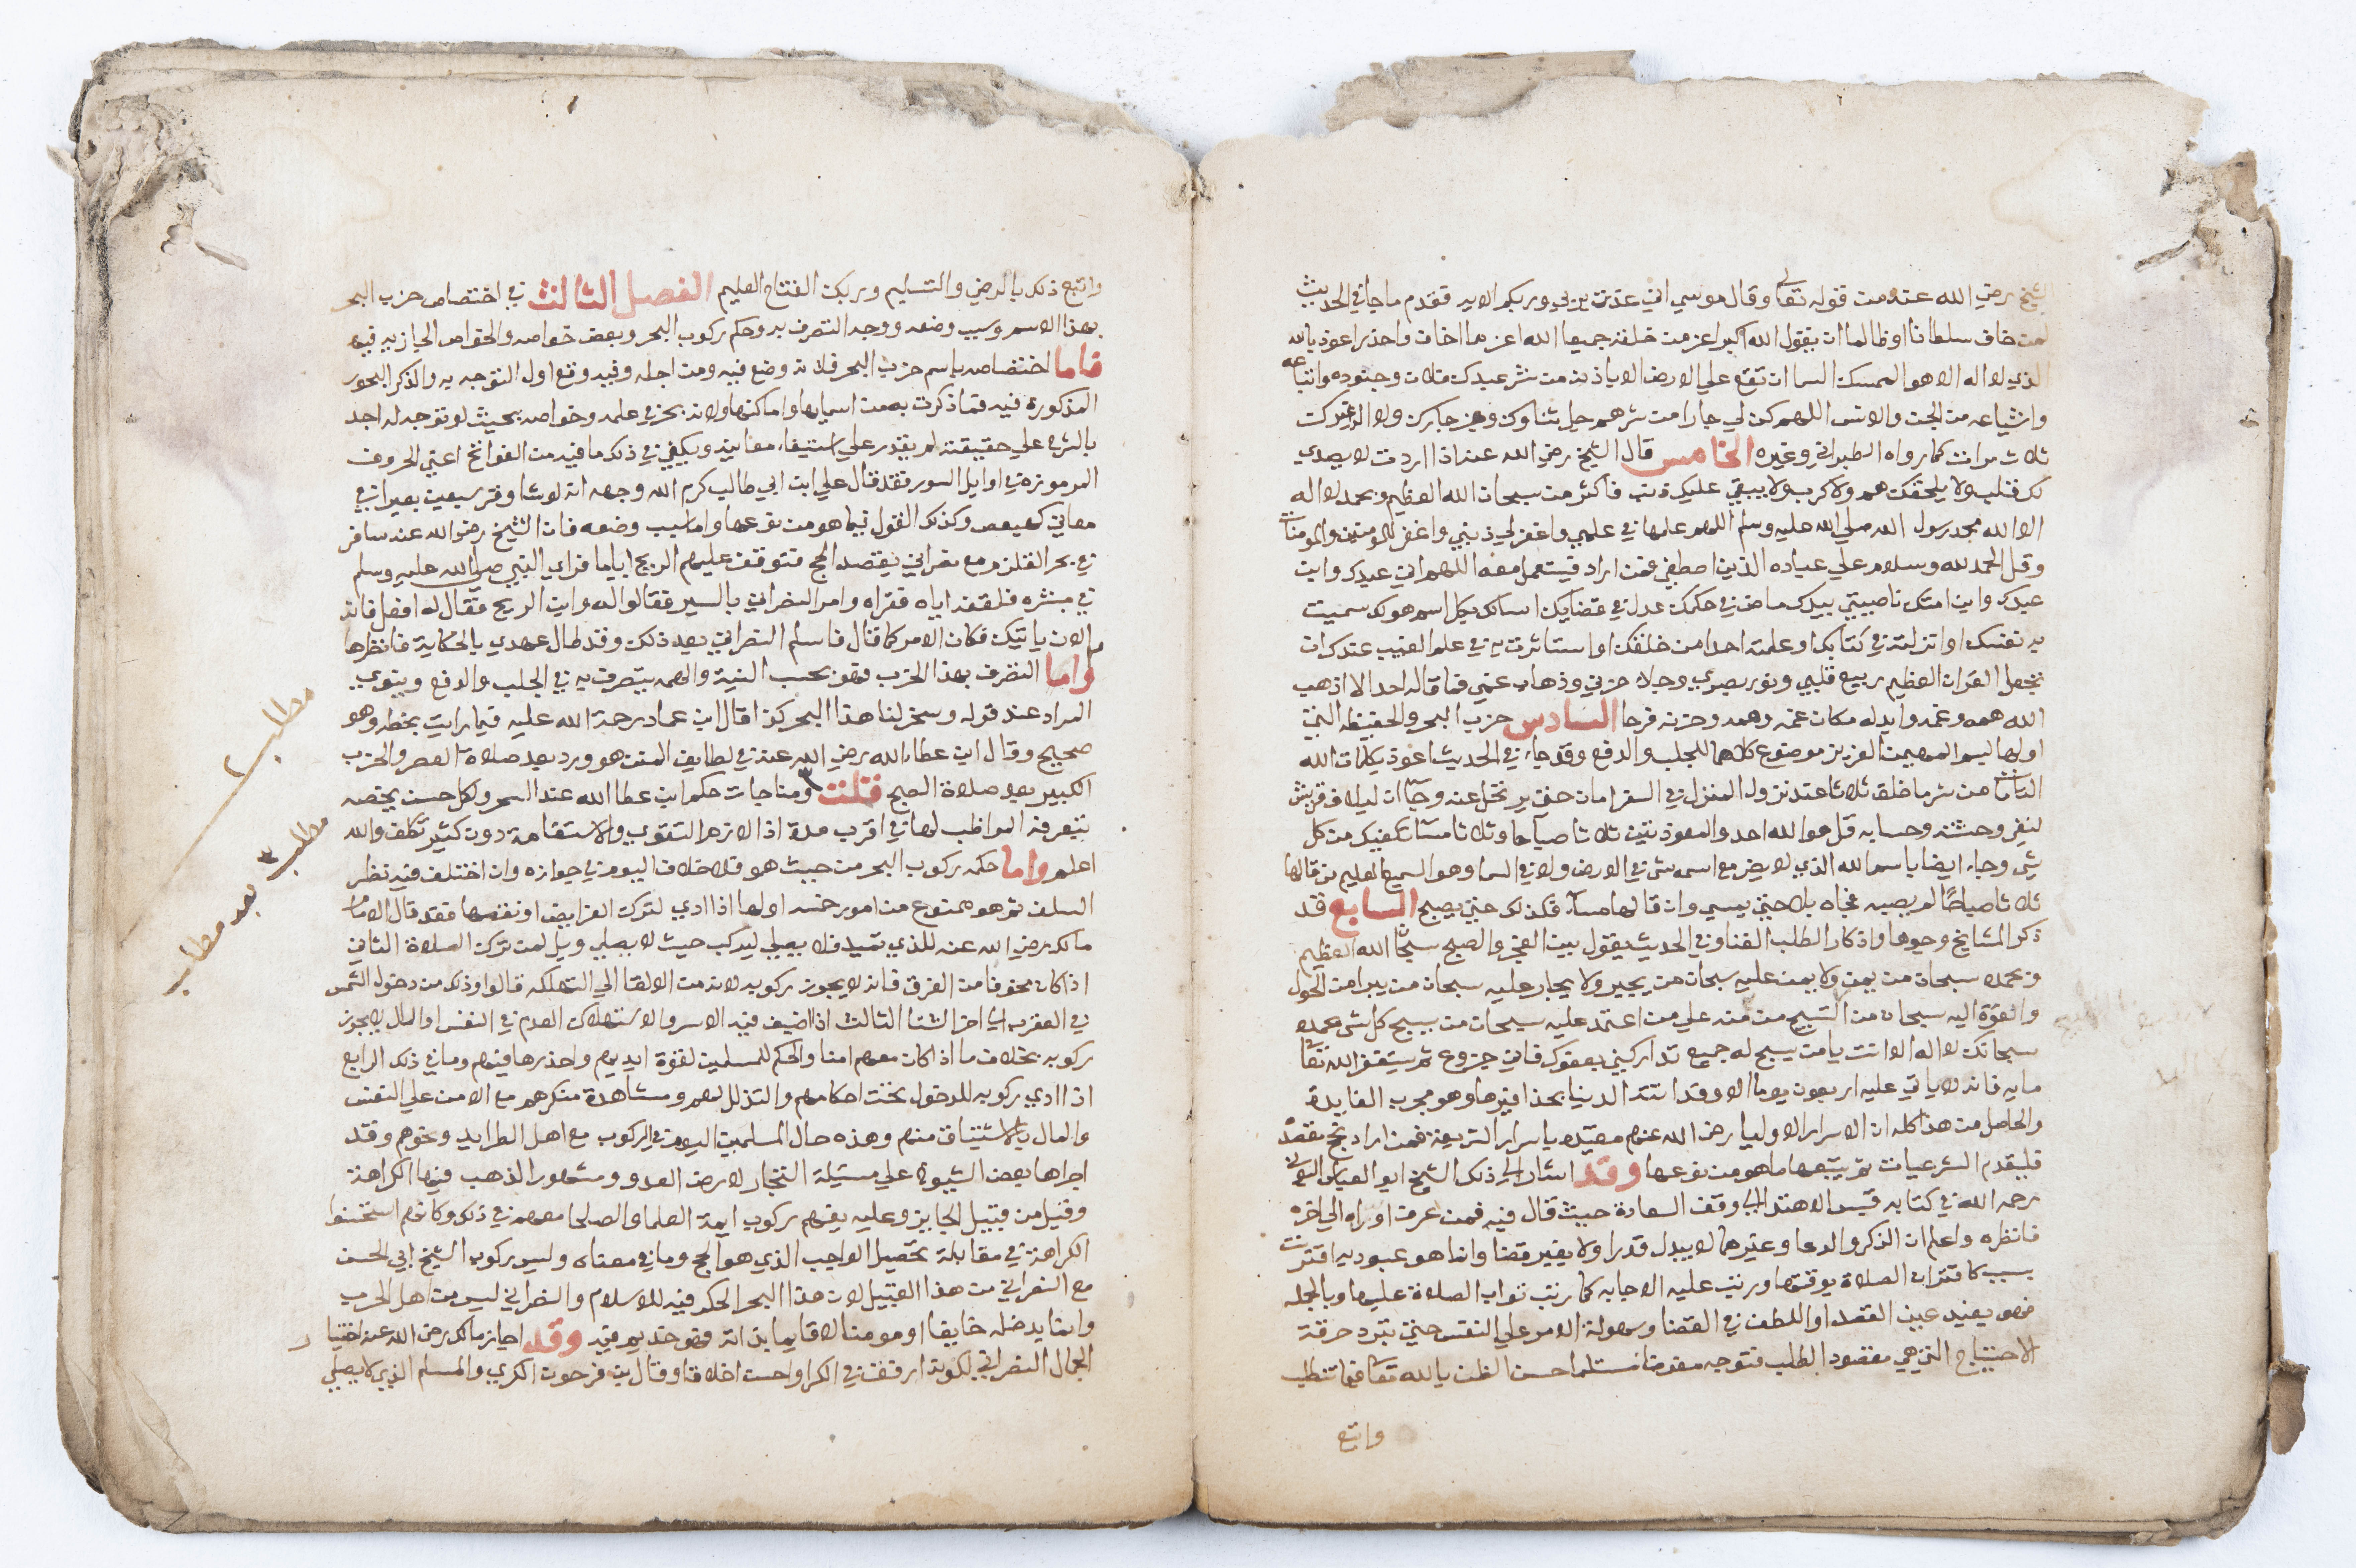 الشيخ رضي الله عنه ومن قوله تعالى وقال موسي اني عذت بربي وربكم الاية فقدم ما جا في الحديث
لمن خاف سلطانا او ظالما ان يقول الله اكبر اعز من خلقه جميعا الله اعز مما اخاف واحذر اعوذ بالله
الذي لا اله الا هو الممسك السما ان تقع علي الارض الا باذنه من شر عبدك فلان وجنوده واتباعه
واشياعه من الجن والانس اللهم كن لي جارا من شرهم جل ثناوك وعز جارك ولا اله غيرك
ثلاث مرات كما رواه الطبراني وغيره الخامس قال الشيخ رضي الله عنه اذا اردت لا يصدي
لك قلب ولا يلحقك هم ولا كرب ولا يبقي عليك ذنب فاكثر من سبحان الله العظيم وبحمده لا اله
الا الله محمد رسول الله صلي الله عليه وسلم اللهم علمها في علمي واغفر لي ذنبي واغفر للمومنين والمومنات
وقل الحمد لله وسلام علي عباده الذين اصطفي فمن اراد فيستعمل معه اللهم اني عبدك وابن
عبدك وابن امتك ناصيتي بيدك ماض في حكمك عدل في قضايك اسالك بكل اسم هو لك سميت
به نفسك او انزلته في كتابك او علمته احدا من خلقك او استاثرت به في علم الغيب عندك ان
تجعل القران العظيم ربيع قلبي ونور بصري وجلاء حزني وذهاب غمي فما قاله احد الا اذهب
الله همه وغمه وابدله مكان غمه وهمه وحزنه فرحا السادس حزب البحر والحفيظة التي
اولها بسم المهيمن العزيز موضوع كلاهما للجلب والدفع وقد جاء في الحديث اعوذ بكلمات الله
التامات من شر ما خلق ثلاثا عند نزول المنزل في السفر امان حتي يرتحل عنه وجا ان ليلاف قريش
وحسابه قل هو الله احد والمعوذتين ثلاثا صباحا وثلاثا مسآ تكفيك من كل
شي وجاء ايضا باسم الله الذي لا يضر مع اسمه شي في الارض ولا في السما وهو السميع العليم من قالها
ثلاثا صباحًا لم يصبه فجاه بلا حتي يمسي وان قالها مسآ فكذلك حتي يصبح السابع قد
ذكر المشايخ وجوها واذكار الطلب الغنا وفي الحديث يقول بين الفجر والصبح سبحان الله العظيم
وبحمده سبحان من يمن ولا يمن عليه سبحان من يجير ولا يجار عليه سبحان من يبرا من الحول
والقوة اليه سبحان من التسبيح من منه علي من اعتمد عليه سبحان من يسبح كل شي بحمده
سبحانك لا اله الا انت يا من يسبح له جميع تداركني بعفوك فاني جزوع ثم يستغفر الله تعالى
مايه فانه لا ياتي عليه اربعون يوما الا وقد اتته الدنيا بحذافيرها وهو مجرب الفايدة
والحاصل من هذا كله ان الاسرار الاوليا رضي الله عنهم مقيده باسرار الشريعة فمن اراد نجح مقصده
فليقدم الشرعيات ثم يتبعها ما هو من نوعها وقد اشار الي ذلك الشيخ ابو العباس البوني
رحمه الله في كتابه قبس الاهتدا الي وقف السعادة حيث قال فيه فمن عرف اوراه الي اخره
فانظره واعلم ان الذكر والدعا وغيرهما لا يبدل قدرا ولا يغير قضا وانما هو عبودية اقترنت
بسبب كاقتران الصلاة بوقتها ورتب عليه الاجابه كما رتب ثواب الصلاة عليها وبالجمله
فهو يفيد عين القصد او اللطف في القضا وسهولة الامر علي النفس حتي تبرد حرقة
الاحتياج التي هي مقصود الطلب فتوجه مفوضا مستسلما حسن الظن بالله تعالى فيما تطلب
واتبع
واتبع ذلك بالرضي والتسليم وربك الفتاح العليم الفصل الثالث في اختصاص حزب البحر
بهذا الاسم وسبب وضعه ووجه التصرف به وحكم ركوب البحر وبعض خواصه والخواص الجايزية فيه
فاما اختصاصه باسم حزب البحر فلانه وضع فيه ومن اجله وفيه وقع اول التوجه به والذكر البحور
المذكورة فيه فما ذكرت به من اسمايها واماكنها ولانه بحر في علمه وخواصه بحيث لو توجه له احد
بالشرح علي حقيقته لم يقدر علي استيفاء معانيه ويكفي في ذلك ما فيه من الفواتح اعني الحروف
المرموزة في اوايل السور فقد قال علي ابن ابي طالب كرم الله وجهه انه لو شا وقر سبعين بعيرا في
معاني كهيعص وكذلك القول فيما هو من نوعها واما سبب وضعه فان الشيخ رضي الله عنه سافر
في بحر القلزم مع نصراني يقصد الحج فتوقف عليهم الريح اياما فراي النبي صلي الله عليه وسلم
في مبشره فلقنه اياه فقراه وامر النصراني بالسير فقال له واين الريح فقال له افعل فانه
الان ياتيك فكان الامر كما قال فاسلم النصراني بعد ذلك وقد طال عهدي بالحكاية فانظرها
واما التصرف بهذا الحزب فهو بحسب النية والهمه يتصرف به في الجلب والدفع وينوي
المراد عند قوله وسخر لنا هذا البحر كذا قال ابن عباد رحمة الله عليه فيما رايت بخطه وهو
صحيح وقال ابن عطاء الله رضي الله عنه في لطايف المنن هو ورد بعد صلاة العصر والحزب
الكبير بعد صلاة الصبح قلت ومناجات حكم ابن عطا الله عند السحر ولكل حسن يخصه
يعرفه المواظب لها في اقرب مدة اذا لازم التقوي والاستقامة دون كثير تكلف والله
اعلم واما حكم ركوب البحر من حيث هو فلا خلاف اليوم في جوازه وان اختلف فيه نظر
السلف ثم هو ممنوع من امور خمسه اولها اذا ادي لترك الفرايض او نقضها فقد قال الامام
مالك رضي الله عنه للذي يميد فلا يصلي ايركب حيث لا يصلي ويل لمن ترك الصلاة الثاني
اذا كان مخوفا من الغرق فانه لا يجوز ركوبه لانه من الالقا الي التهلكه قالوا وذلك من دخول الشمس
في العقرب الي اخر الشتا الثالث اذا خيف فيه الاسر والاستهلاك العدو في النفس او المال لا يجوز
ركوبه بخلاف ما اذا كان معهم امنا والحكم للمسلمين لقوة ايديهم واخذ رهاينهم وما في ذلك الرابع
اذا ادي ركوبه للدخول تحت احكامهم والتذلل لهم ومشاهدة منكرهم مع الامن علي النفس
والمال بالاستيثاق منهم وهذه حال المسلمين اليوم في الركوب مع اهل الطرايد ونحوهم وقد
اجراها بعض الشيوخ علي مسيلة التجار لارض العدو ومشهور الذهب فيها الكراهة
وقيل من قبيل الجايز وعليه يفهم ركوب ايمة العلما والصلحا معهم في ذلك وكانهم استخفوا
الكراهة في مقابلة تحصيل الواجب الذي هو الحج وما في معناه وليس ركوب الشيخ ابي الحسن
مع النصراني من هذا القبيل لان هذا البحر الحكم فيه للاسلام والنصراني ليس من اهل الحرب
وانما يدخله خايفا او مومنا لا قايما بذاته فهو خديم فيه وقد اجاز مالك رضي الله عنه اختيار
الجمال النصراني لكونه ارفق في الكرا واحسن اخلاقا وقال ابن فرحون الكري والمسلم الذي لا يصلي
مطلب ٢
مطلب ٣ بعد مطلب